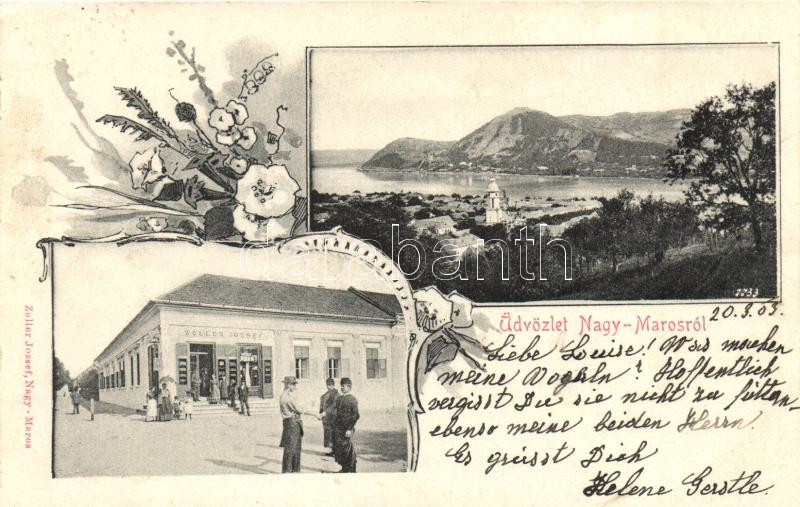 ZOLLER JOZSEF
7733
Üdvözlet Nagy-Marosról
Zoller Jozsef, Nagy-Maros
20.3.03.
Liebe Louise! Was machen
meine Vogerln? Hoffentlich
vergisst Du sie nicht zu füttern
ebenso meine beiden Herrn.
Es grüsst Dich
Helene Gerstle.
darabanth